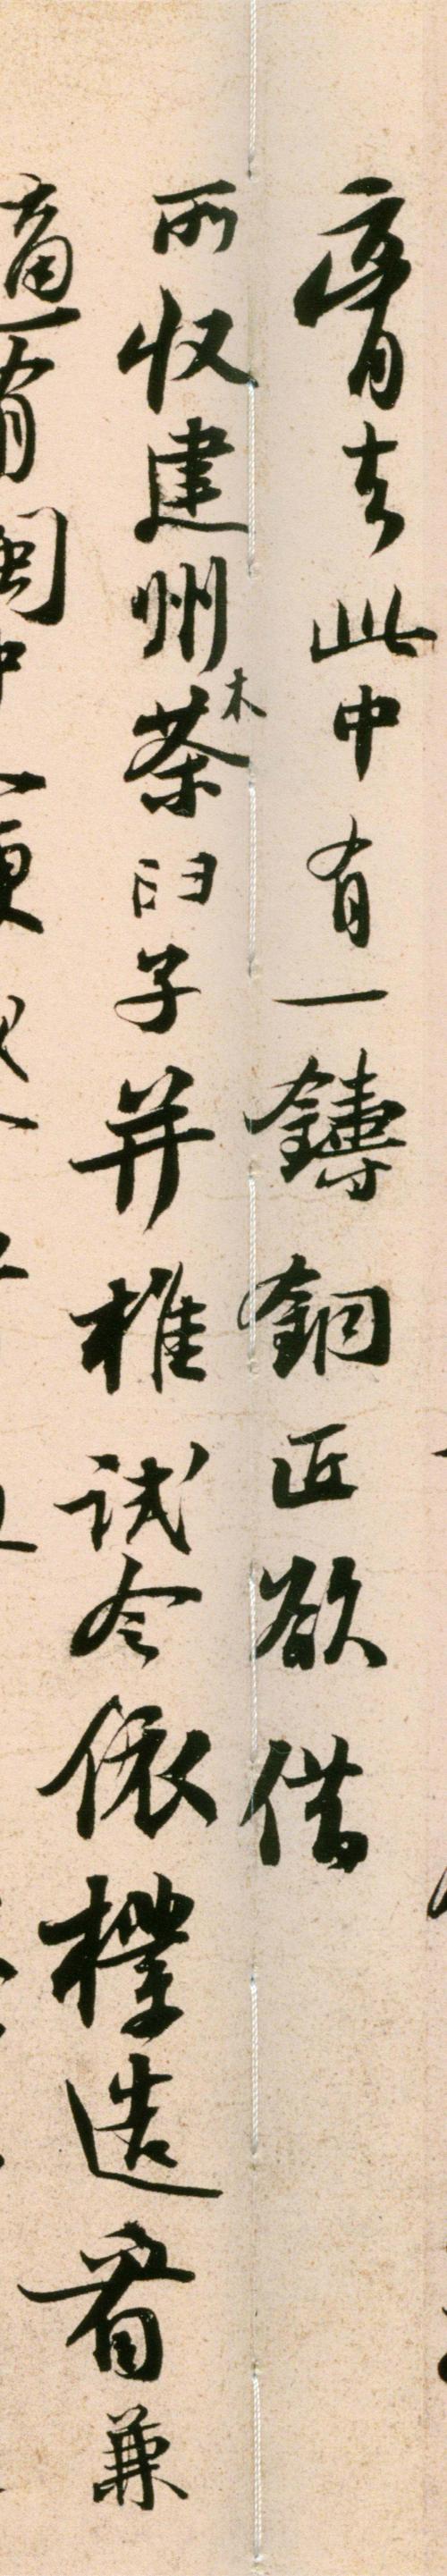 膏去此中有一鑄銅匠欲借
所收建州木茶臼子并椎試令依樣造看兼
適有閩中人便